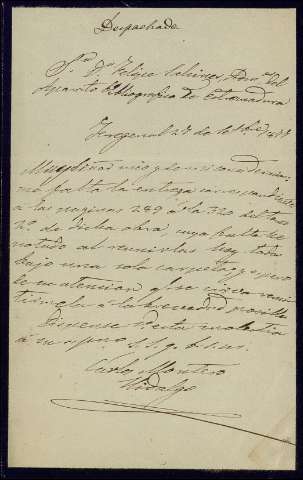 Despachada
Sr. Dn. Felipe Admor. del
Aparato Bibliografico de Estremadura
Fregenal 27 de 1877
Muy Señor mio y de mi consideracion:
me falta la entrega correspondiente
a las paginas 289 á la 320 del tomo
2º de dicha obra, cuya falta he
notado al reunirlas hoy todas
bajo una sola carpeta, y espero
de su atencion que se sirva remi-
tirmela á la brevedad posible.
Dispense V. esta molestia
á su affmo. S. S. q. b. s. m.
Carlos Montero
Hidalgo